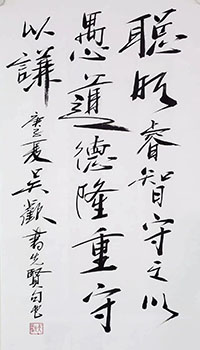 聰明睿智守之以
愚道德隆重守
以謙
庚子夏吴歡書先賢句